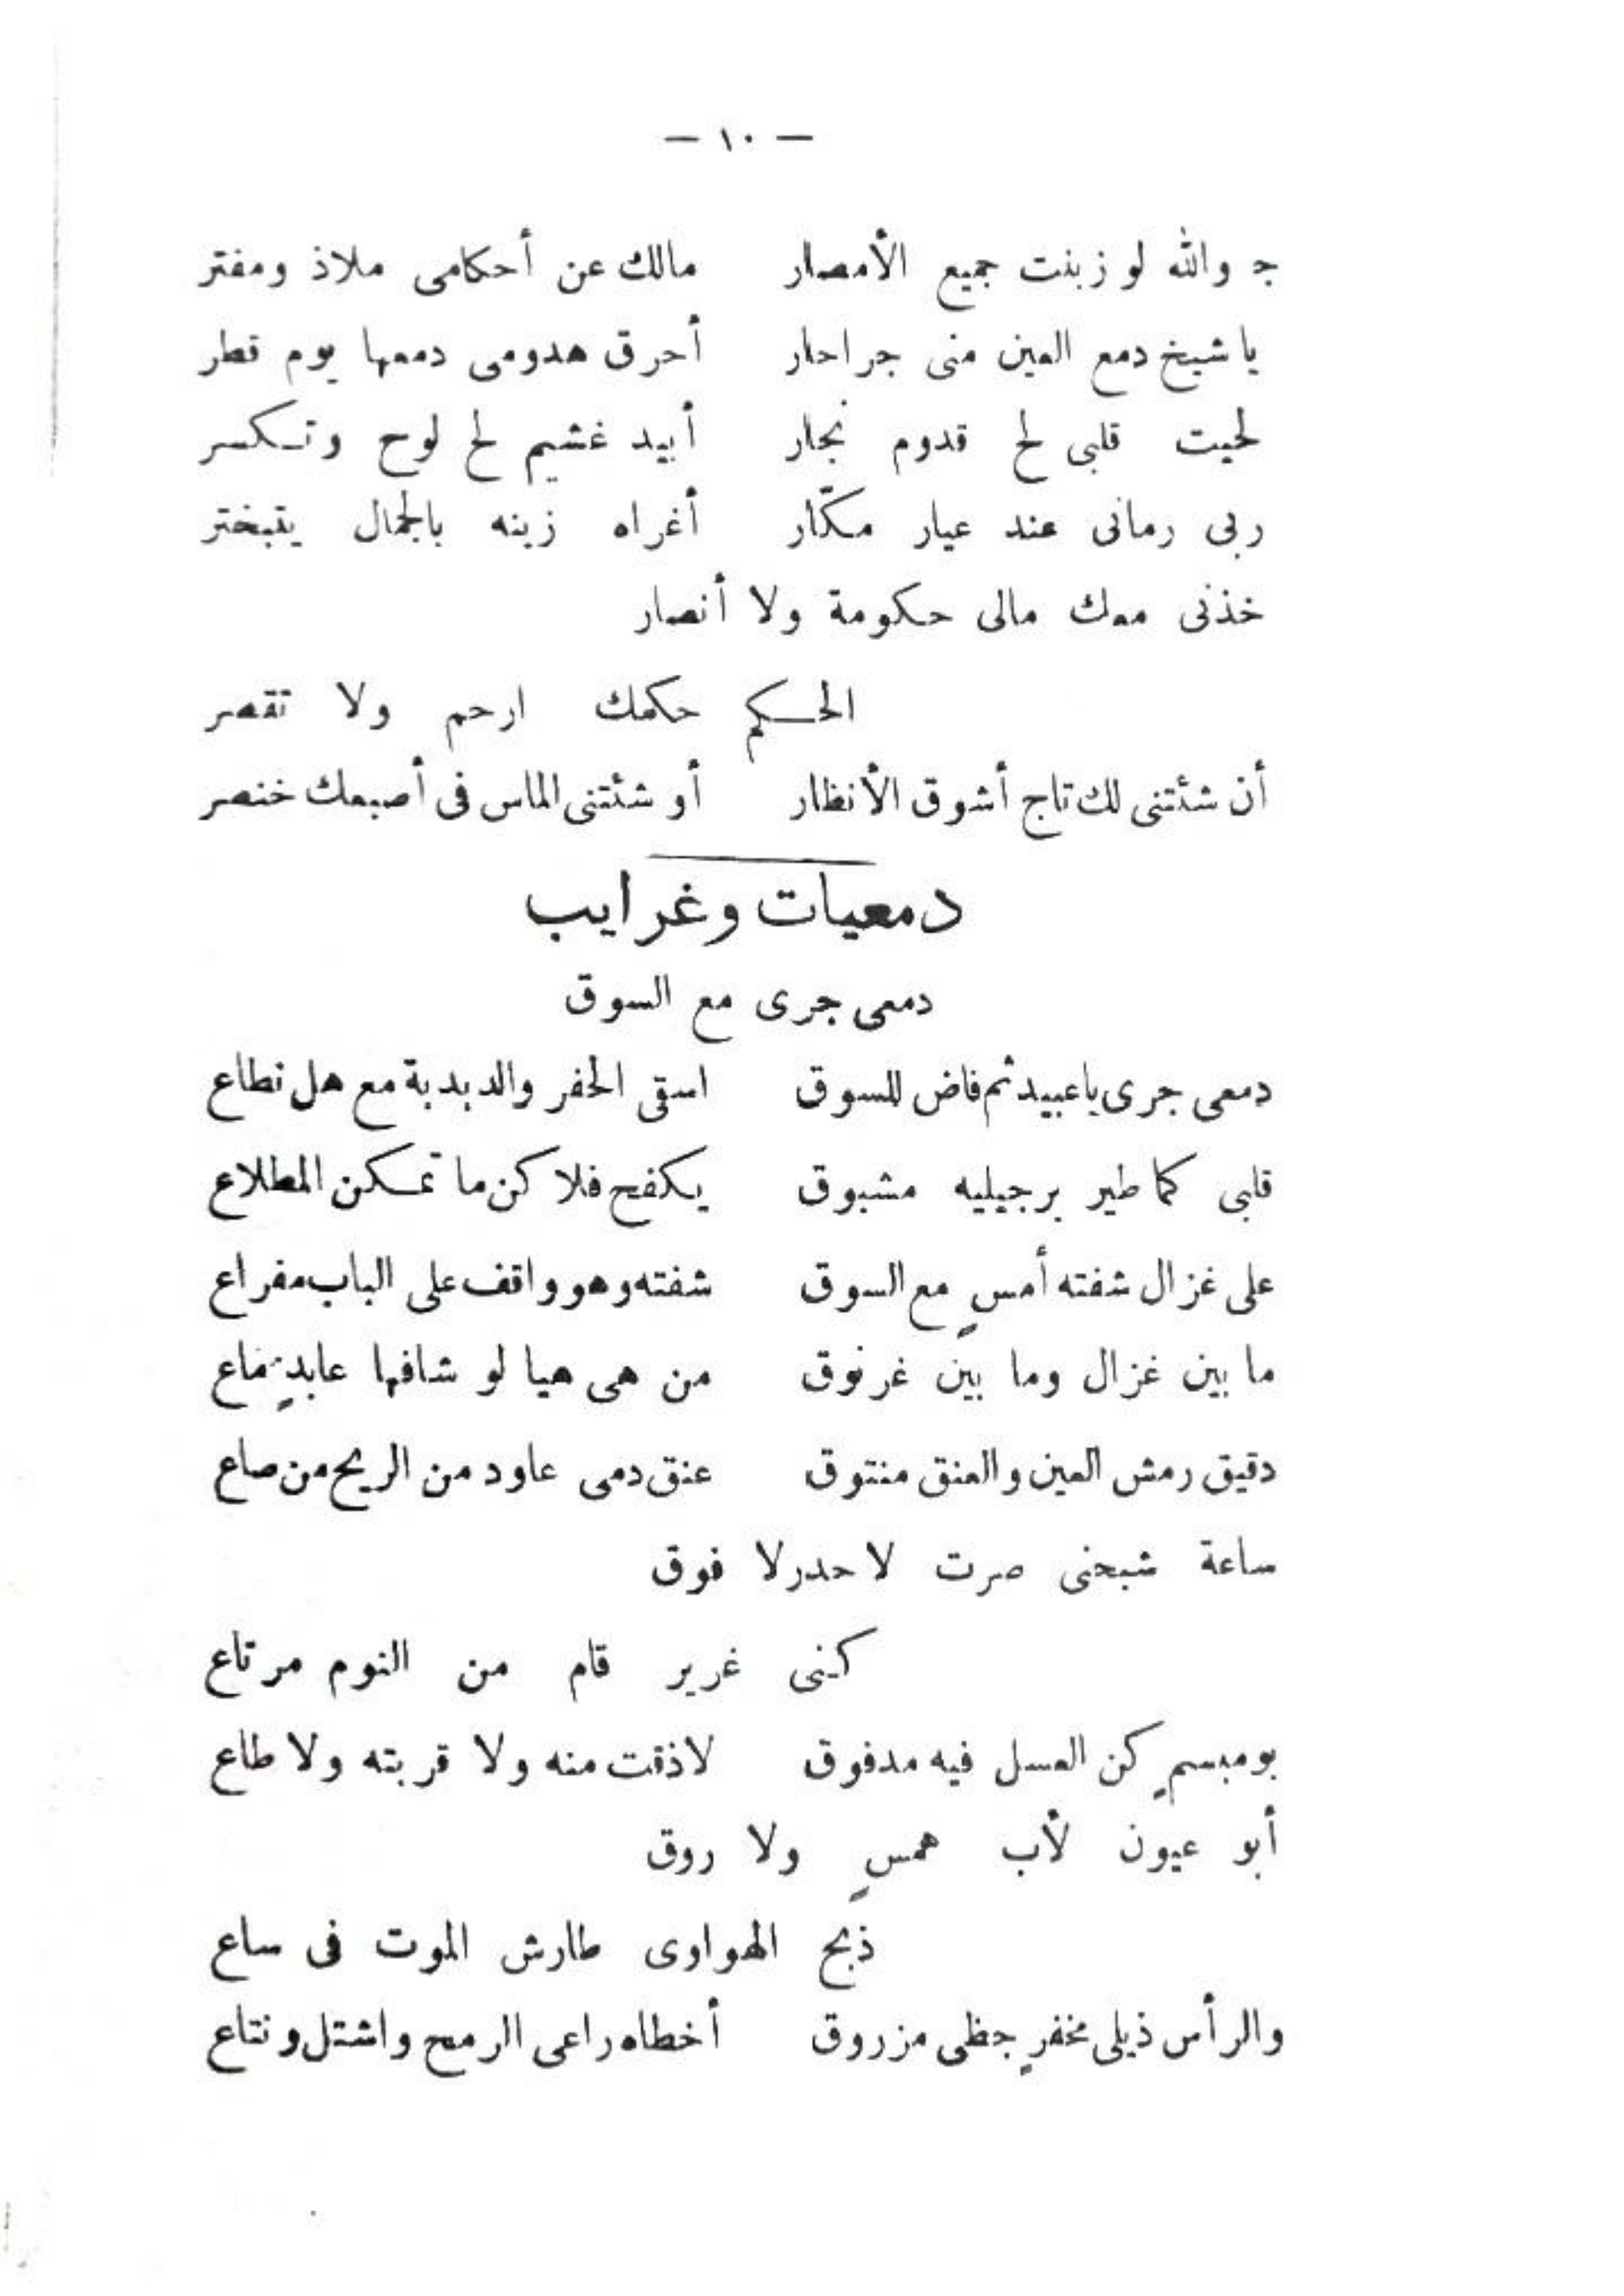 — ١٠ —
ج والله لو زبنت جميع الأمصار مالك عن أحكامى ملاذ ومفتر
يا شيخ دمع العين منى جرا حار أحرق هدومى دمعها يوم قطر
لحيت قلبى لح قدوم نجار أبيد غشيم لح لوح وتكسر
ربى رمانى عند عيار مكّار أغراه زينه بالجمال يتبختر
خذنى معك مالى حكومة ولا أنصار
الحكم حكمك ارحم ولا تقصر
أن شئتنى لك تاج أشوق الأنظار أو شئتنى الماس فى أصبعك خنصر
دمعيات وغرايب
دمعى جرى مع السوق
دمعى جرى يا عبيد ثم فاض للسوق اسقى الحفر والدبدبة مع هل نطاع
قلبى كما طير برجيليه مشبوق يكفح فلا كن ما تمكن المطلاع
على غزال شفته أمسٍ مع السوق شفته وهو واقف على الباب مفراع
ما بين غزال وما بين غرنوق من هى هيا لو شافها عابدٍ ماع
دقيق رمش العين والعنق منتوق عنق دمى عاود من الريح من صاع
ساعة شبحنى صرت لا حدر لا فوق
كنى غرير قام من النوم مرتاع
بو مبسمٍ كن العسل فيه مدفوق لا ذقت منه ولا قربته ولا طاع
أبو عيون لأب همسٍ ولا روق
ذبح الهواوى طارش الموت فى ساع
والرأس ذيلى مخفرٍ جظى مزروق أخطاه راعى الرمح واشتل ونتاع